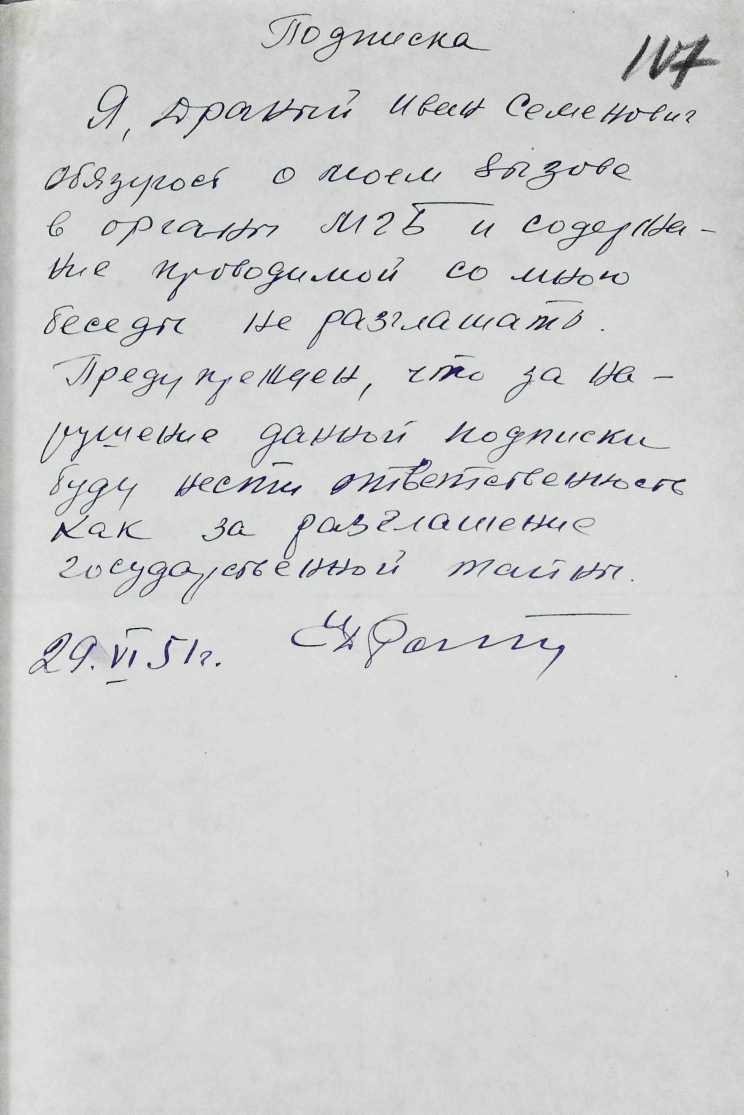 Подписка
107
Я, Драный Иван Семенович
обязуюсь о моем вызове
в органы МГБ и содержа-
ние проводимой со мною
беседы не разглашать.
Предупрежден, что за на-
рушение данной подписки
буду нести ответственность
как за разглашение
государственной тайны.
29.VI 51г.